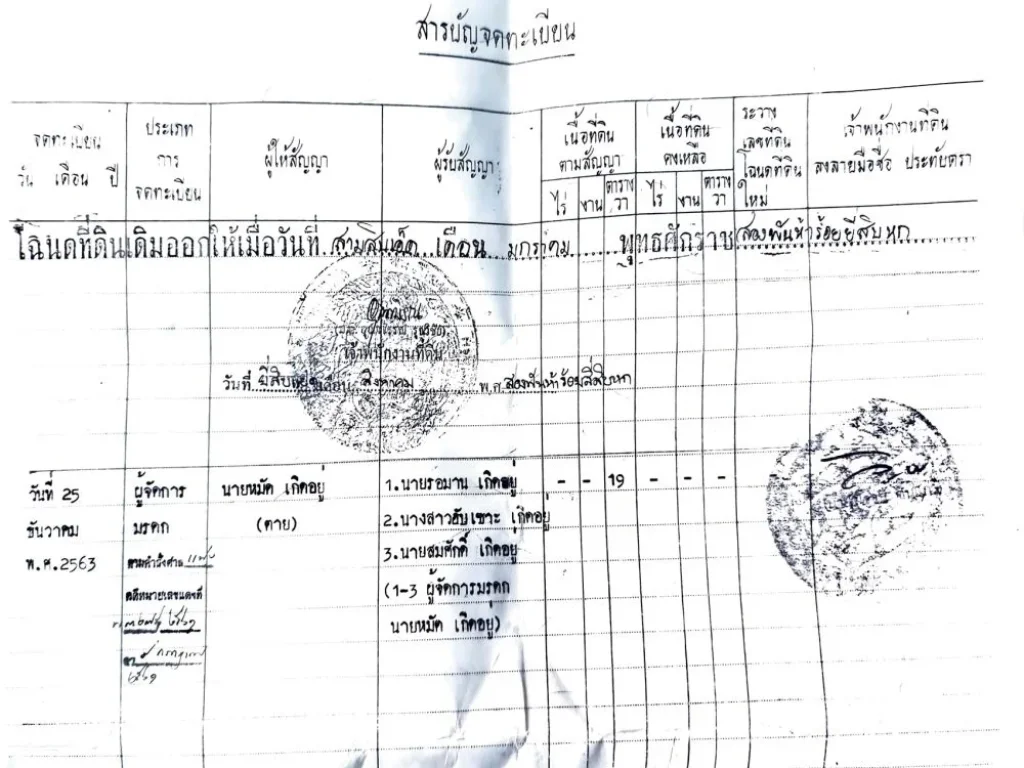 สารบัญจดทะเบียน
จดทะเบียน
วัน เดือน ปี
ประเภท
การ
จดทะเบียน
ผู้ให้สัญญา
ผู้รับสัญญา
เนื้อที่ดิน
ตามสัญญา
ไร่ งาน ตาราง
วา
เนื้อที่ดิน
คงเหลือ
ไร่ งาน ตาราง
วา
ระวาง
เลขที่ดิน
โฉนดที่ดิน
ใหม่
เจ้าพนักงานที่ดิน
ลงลายมือชื่อ ประทับตรา
โฉนดที่ดินเดิมออกให้เมื่อวันที่ สามสิบเอ็ด เดือน มกราคม พุทธศักราช สองพันห้าร้อยยี่สิบหก
เจ้าพนักงานที่ดิน
วันที่ เดือน สิงหาคม พ.ศ. สองพันห้าร้อยสี่สิบหก
วันที่ 25
ธันวาคม
พ.ศ.2563
ผู้จัดการ
มรดก
ตามคำสั่งศาล
คดีหมายเลขแดงที่
นายหมัด เกิดอยู่
(ตาย)
1.นายรอมาน เกิดอยู่
2.นางสาวฮับเซาะ เกิดอยู่
3.นายสมศักดิ์ เกิดอยู่
(1-3 ผู้จัดการมรดก
นายหมัด เกิดอยู่)
- - 19 - - -